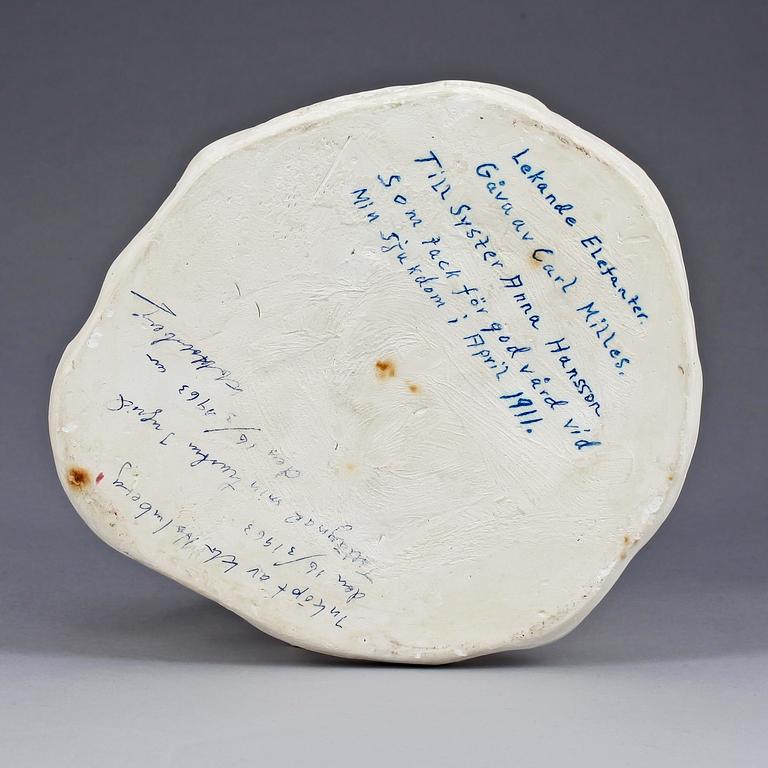 Lekande Elefanter.
Gåva av Carl Milles.
Till Syster Anna Hansson
Som tack för god vård vid
Min Sjukdom i April 1911.
Inköpt av Holmberg
den 16/3 1963
min hustru Ingrid
den 16/3 1963 av